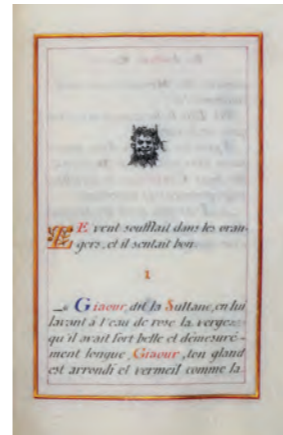 LE vent soufflait dans les oran-
gers, et il sentait bon.
1
_« Giaour, dit la Sultane, en lui
lavant à l'eau de rose la verge
qu'il avait fort belle et démesuré-
ment longue, Giaour, ton gland
est arrondi et vermeil comme la